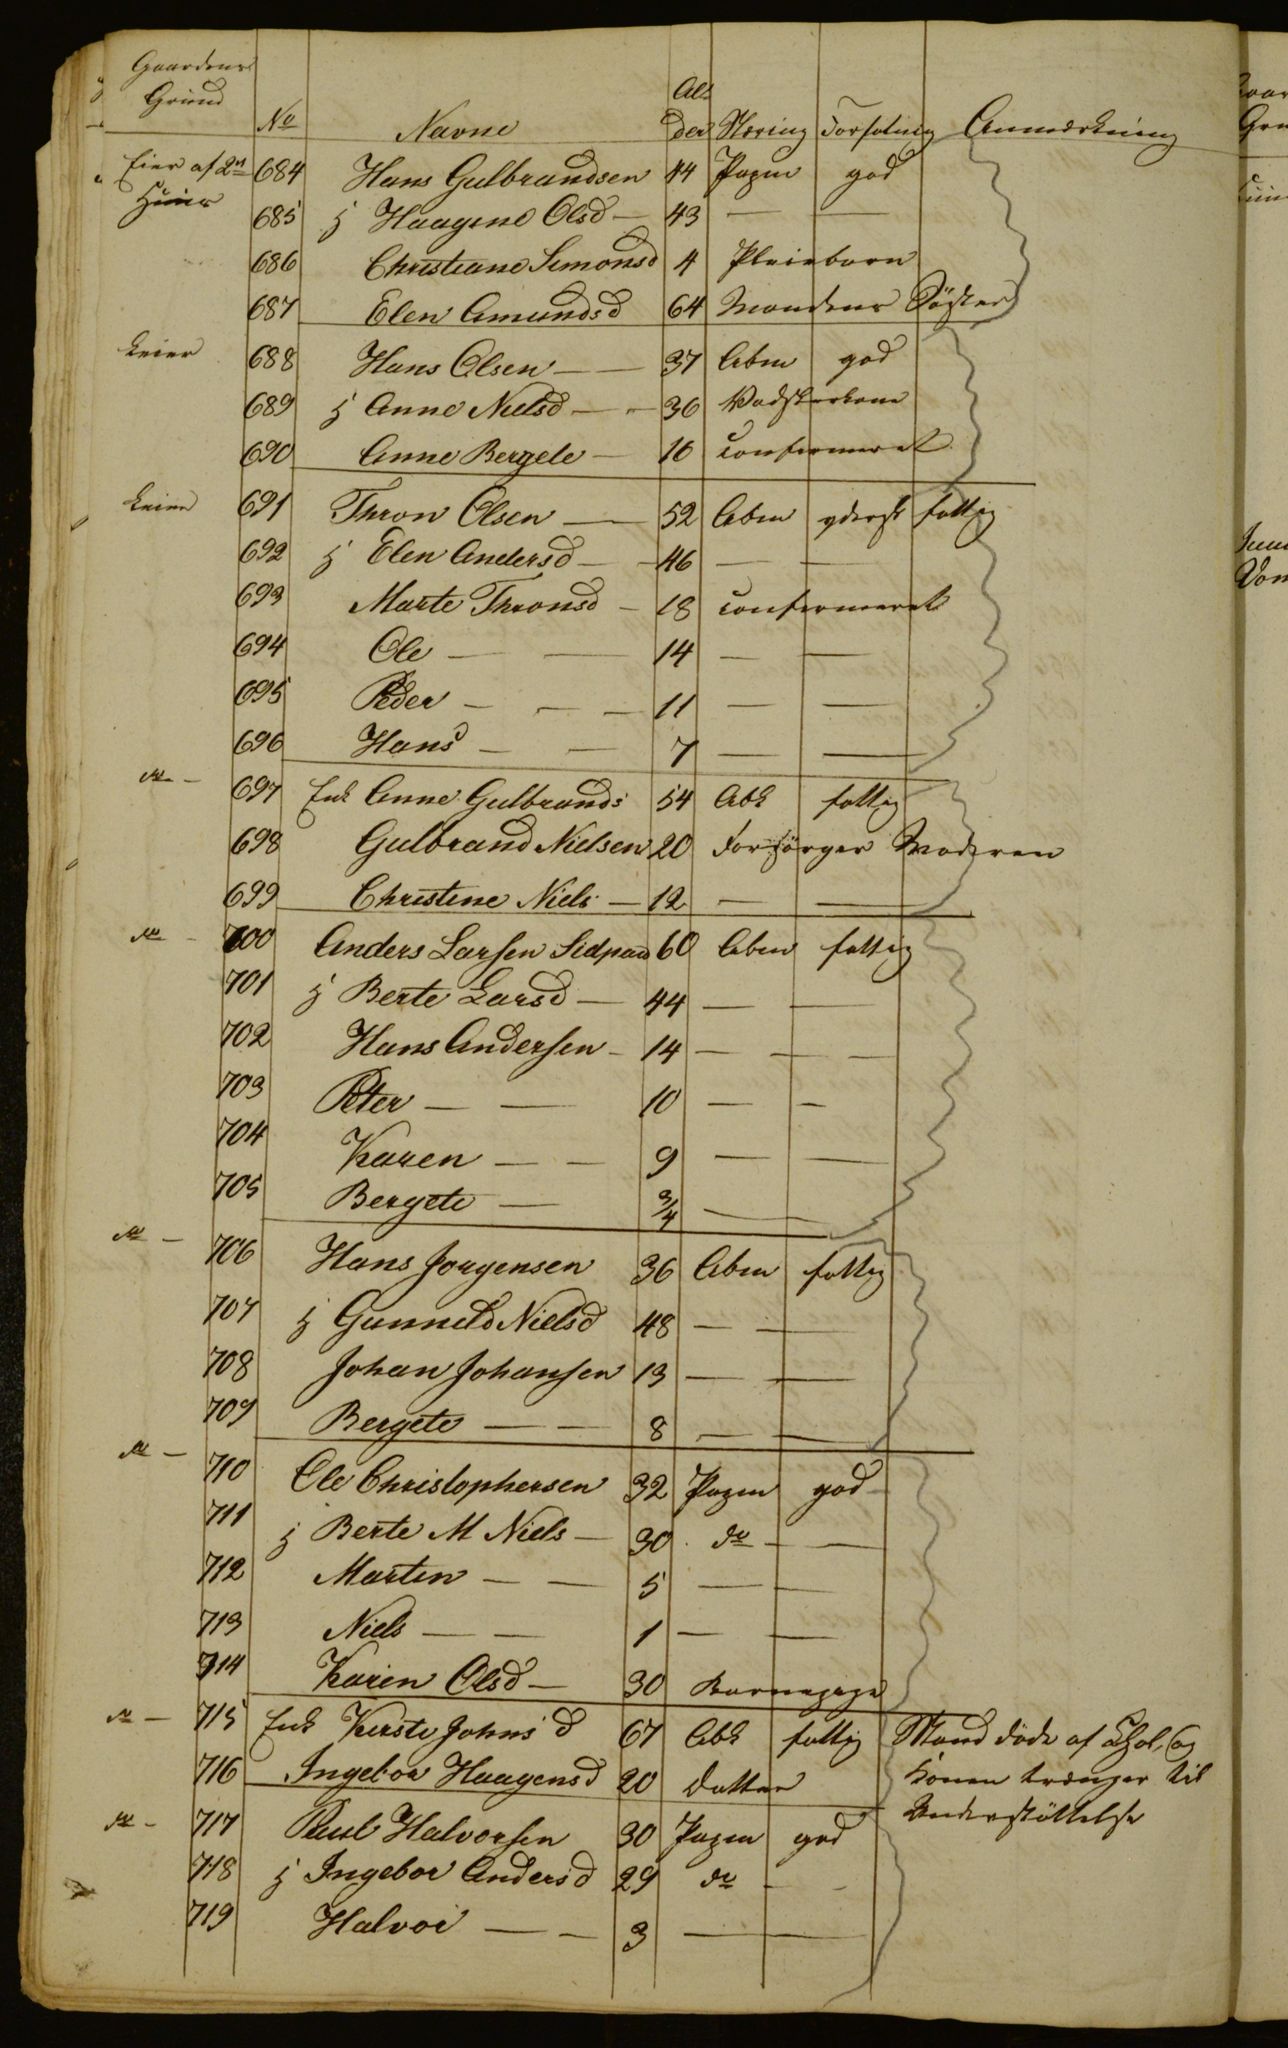 Gaardens
Grund No Navne Alder Næring Forfatning Anmærkning
Eier af 2n 684 Hans Gulbrandsen 44 Pagm god
Huus 685 H Haagene Olsd — 43 — —
686 Christiane Simonsd 4 Pleiebarn
687 Elen Amundsd 64 Mandens Søster
Leier 688 Hans Olsen — — 37 Abm god
689 H Anne Nielsd — — 36 Vadskerkone
690 Anne Bergete — 16 confirmeret
Leier 691 Thron Olsen — 52 Abm yderst fattig
692 H Elen Andersd — — 46 — —
693 Marte Thronsd — 18 confirmeret
694 Ole — — 14 — —
695 Peder — — — 11 — —
696 Hans — — 7 — —
do — 697 Enk Anne Gulbrands 54 Abk fattig
698 Gulbrand Nielsen 20 Forsørger Moderen
699 Christine Niels — 12 — —
do — 700 Anders Larsen Sidpaa 60 Abm fattig
701 H Berte Larsd — 44 — —
702 Hans Andersen — 14 — — —
703 Peter — — 10 — —
704 Karen — — 9 — —
705 Bergete — 3/4 —
do — 706 Hans Jorgensen 36 Abm fattig
707 H Gunneld Nielsd 48 — —
708 Johan Johansen 13 — —
709 Bergete — — 8 — —
do — 710 Ole Christophersen 32 Pagm god —
711 H Berte M Niels — 30 do — —
712 Marten — — 5 — —
713 Niels — — 1 — —
714 Karen Olsd — 30 Barnepige
do — 715 Enk Kirste Johns d 67 Abk fattig Mand døde af Chol, og
716 Ingebor Haagensd 20 Datter Konen trænger til
Understøttelse
do — 717 Paul Halvorsen 30 Pagm god
718 H Ingebor Anders d 29 do — —
719 Halvor — — 3 — —